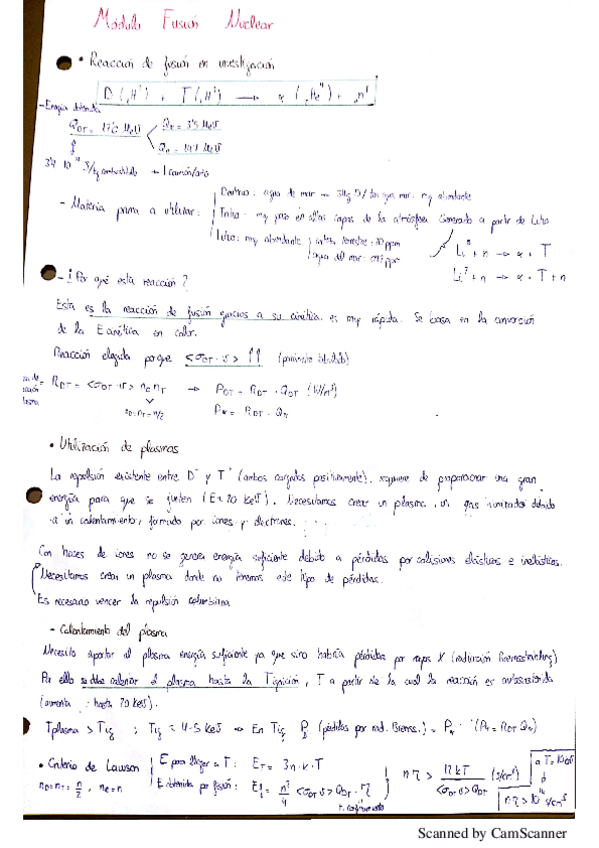 Módulo Fusión Nuclear
• Reacción de fusión en investigación
D (₁H²) + T (₁H³) → α (₂He⁴) + ₀n¹
- Energía
Q_DT = 17'6 MeV
Qα = 3'5 MeV
Qn = 14'1 MeV
- Materia prima a utilizar:
Deuterio: agua de mar muy abundante
Tritio: muy poco en altas capas de la atmósfera. Generado a partir de Litio
Litio: muy abundante
corteza terrestre: 30 ppm
agua del mar:
Li⁶ + n → α + T
Li⁷ + n → α + T + n
- ¿Por qué esta reacción?
Esta es la reacción de fusión gracias a su cinética es muy rápida. Se basa en la conversión
de la E cinética en calor.
Reacción elegida porque <σ_DT · v> ↑↑
R_DT = <σ_DT · v> n_D n_T → P_DT = R_DT · Q_DT
n_D = n_T = n/2
Pα = R_DT · Qα
• Utilización de plasmas
La repulsión existente entre D⁺ y T⁺ (ambos cargados positivamente), requiere de proporcionar una gran
energía para que se junten Necesitamos crear un plasma, un gas ionizado debido
a un calentamiento, formado por iones y electrones.
Con haces de iones no se genera energía suficiente debido a pérdidas por colisiones elásticas e inelásticas.
Necesitamos crear un plasma donde no tenemos este tipo de pérdidas.
Es necesario vencer la repulsión culombiana
- Calentamiento del plasma
Necesito aportar al plasma energía suficiente ya que sino habría pérdidas por rayos X (radiación Bremsstrahlung)
Por ello se debe calentar el plasma hasta la Tignición, T a partir de la cual la reacción es autosostenida
T plasma > Tig ; Tig = 4-5 keV → En Tig (pérdidas por rad. Brems.) = Pα (Pα = R_DT Qα)
• Criterio de Lawson
n_D = n_T = n/2, n_e = n
E para llegar a T: E_T = 3n · k · T
E obtenida por fusión: E_f = n²/4 <σ_DT v> Q_DT · τ
t. confinamiento
nτ > 12 kT / <σ_DT v> Q_DT (s/cm³)
nτ > 10¹⁴ s/cm³
Scanned by CamScanner